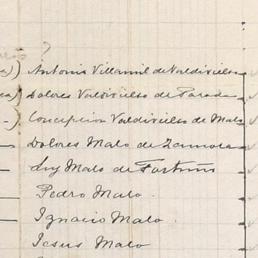 ?
a) Antonio Villamil de Valdivielso
ca) Dolores Valdivielso de Parada
-) Concepcion Valdivielso de Malo
Dolores Malo de Zamora
Luz Malo de Fortuño
Pedro Malo.
Ignacio Malo.
Jesus Malo